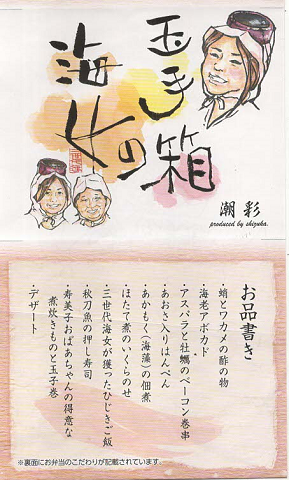 海女の
玉手箱
潮彩
produced by shizuka.
お品書き
・蛸とワカメの酢の物
・海老アボカド
・アスパラと牡蠣のベーコン巻串
・あおさ入りはんぺん
・あかもく(海藻)の佃煮
・ほたて煮のいくらのせ
・三世代海女が獲ったひじきご飯
・秋刀魚の押し寿司
・寿美子おばあちゃんの得意な
煮炊きものと玉子巻
・デザート
※裏面にお弁当のこだわりが記載されています